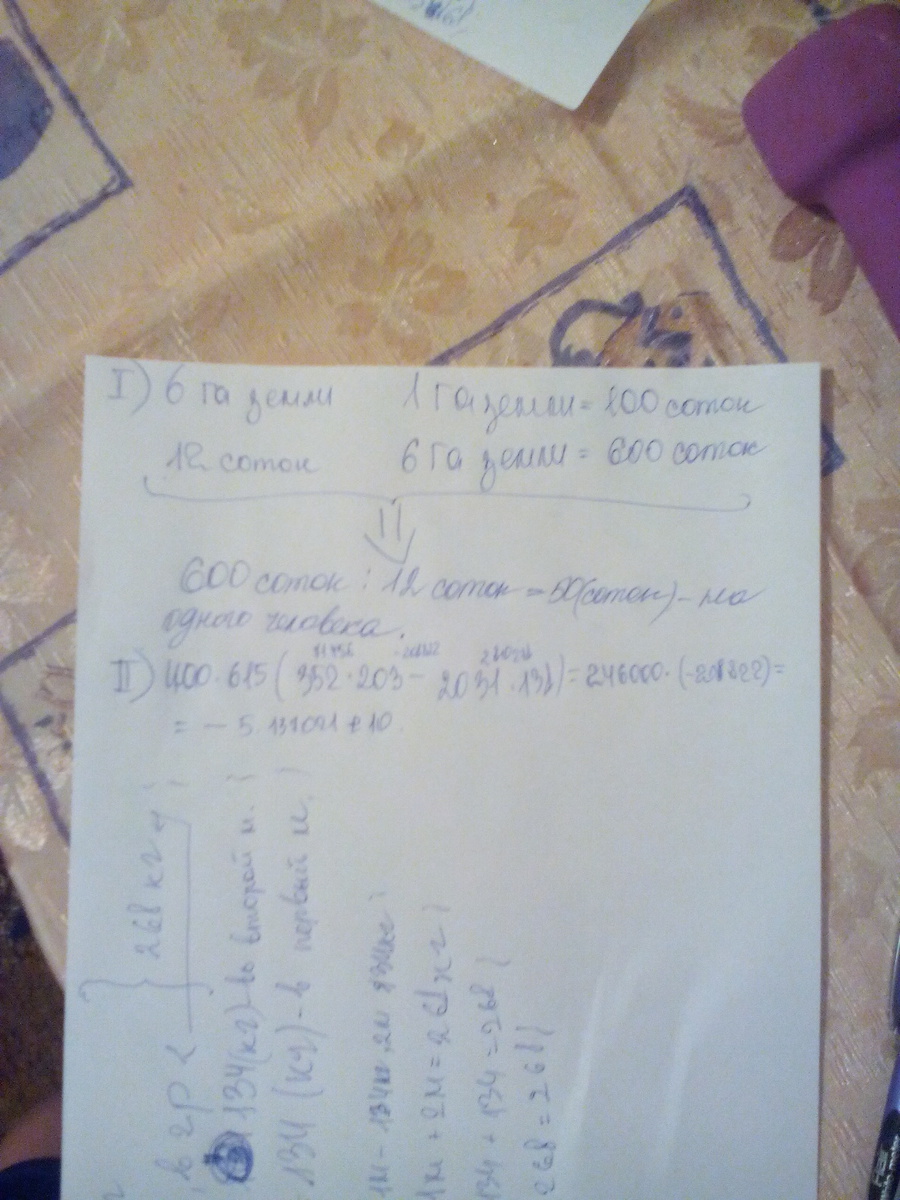 I) 6 га земли 1 га земли = 100 соток
12 соток 6 га земли = 600 соток
600 соток : 12 соток = 50 (соток) - на
одного человека.
II) 400 · 615 ( 352 · 203 - 2031 · 138) = 246000 · (-208822) =
= - 5.137021 e 10.
} 268 кг
в 2р <
134 (кг) - во второй м.
134 (кг) - в первый м.
1м - 134кг, 2м 134кг
1м + 2м = 268кг
134 + 134 = 268
268 = 268